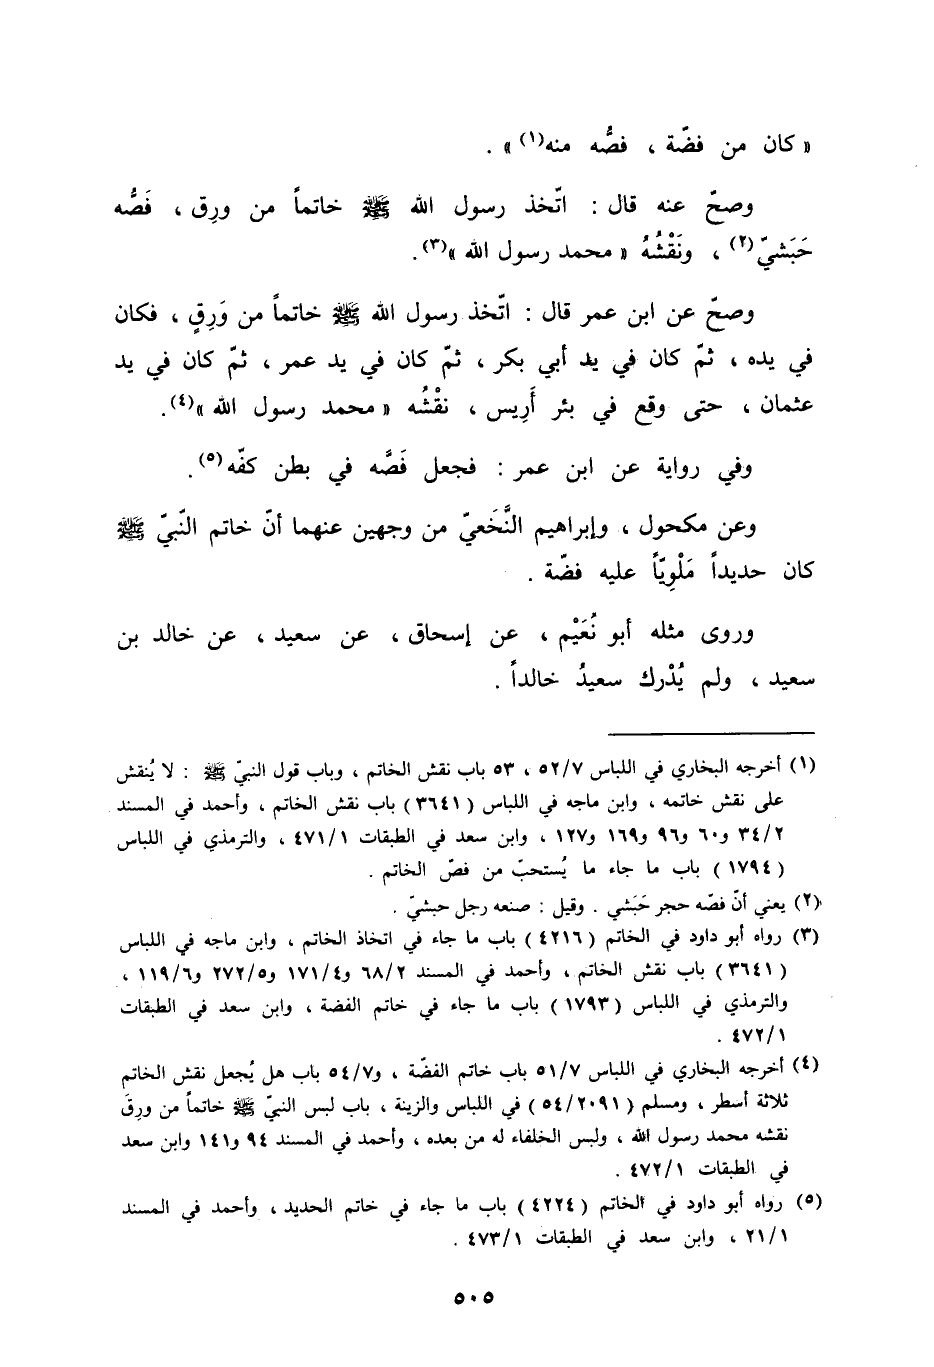 « كان من فضّة ، فصُّه منه(١)» .
وصحّ عنه قال : اتّخذ رسول الله ﷺ خاتماً من ورِق ، فَصُّه
حَبَشيّ(٢) ، ونَقْشُهُ « محمد رسول الله »(٣).
وصحّ عن ابن عمر قال : اتّخذ رسول الله ﷺ خاتماً من وَرِقٍ ، فكان
في يده ، ثمّ كان في يد أبي بكر ، ثمّ كان في يد عمر ، ثمّ كان في يد
عثمان ، حتى وقع في بئر أَرِيس ، نقْشُه « محمد رسول الله »(٤).
وفي رواية عن ابن عمر : فجعل فَصَّه في بطن كفّه(٥).
وعن مكحول ، وإبراهيم النَّخَعيّ من وجهين عنهما أنّ خاتم النّبيّ ﷺ
كان حديداً مَلْوِيّاً عليه فضّة .
وروى مثله أبو نُعَيْم ، عن إسحاق ، عن سعيد ، عن خالد بن
سعيد ، ولم يُدْرك سعيدُ خالداً .
(١) أخرجه البخاري في اللباس ٥٢/٧ ، ٥٣ باب نقش الخاتم ، وباب قول النبيّ ﷺ : لا يُنقش
على نقش خاتمه ، وابن ماجه في اللباس (٣٦٤١) باب نقش الخاتم ، وأحمد في المسند
٣٤/٢ و٦٠ و٩٦ و١٦٩ و١٢٧ ، وابن سعد في الطبقات ٤٧١/١ ، والترمذي في اللباس
(١٧٩٤) باب ما جاء ما يُستحبّ من فصّ الخاتم .
(٢) يعني أنّ فصّه حجر حَبَشي . وقيل : صنعه رجل حبشيّ .
(٣) رواه أبو داود في الخاتم (٤٢١٦) باب ما جاء في اتخاذ الخاتم ، وابن ماجه في اللباس
(٣٦٤١) باب نقش الخاتم ، وأحمد في المسند ٦٨/٢ و١٧١/٤ و٢٧٢/٥ و١١٩/٦ ،
والترمذي في اللباس (١٧٩٣) باب ما جاء في خاتم الفضة ، وابن سعد في الطبقات
٤٧٢/١ .
(٤) أخرجه البخاري في اللباس ٥١/٧ باب خاتم الفضّة ، و٥٤/٧ باب هل يُجعل نقش الخاتم
ثلاثة أسطر ، ومسلم (٥٤/٢٠٩١) في اللباس والزينة ، باب لبس النبيّ ﷺ خاتماً من ورِق
نقشه محمد رسول الله ، ولبس الخلفاء له من بعده ، وأحمد في المسند ٩٤ و١٤١ وابن سعد
في الطبقات ٤٧٢/١ .
(٥) رواه أبو داود في الخاتم (٤٢٢٤) باب ما جاء في خاتم الحديد ، وأحمد في المسند
٢١/١ ، وابن سعد في الطبقات ٤٧٣/١ .
٥٠٥